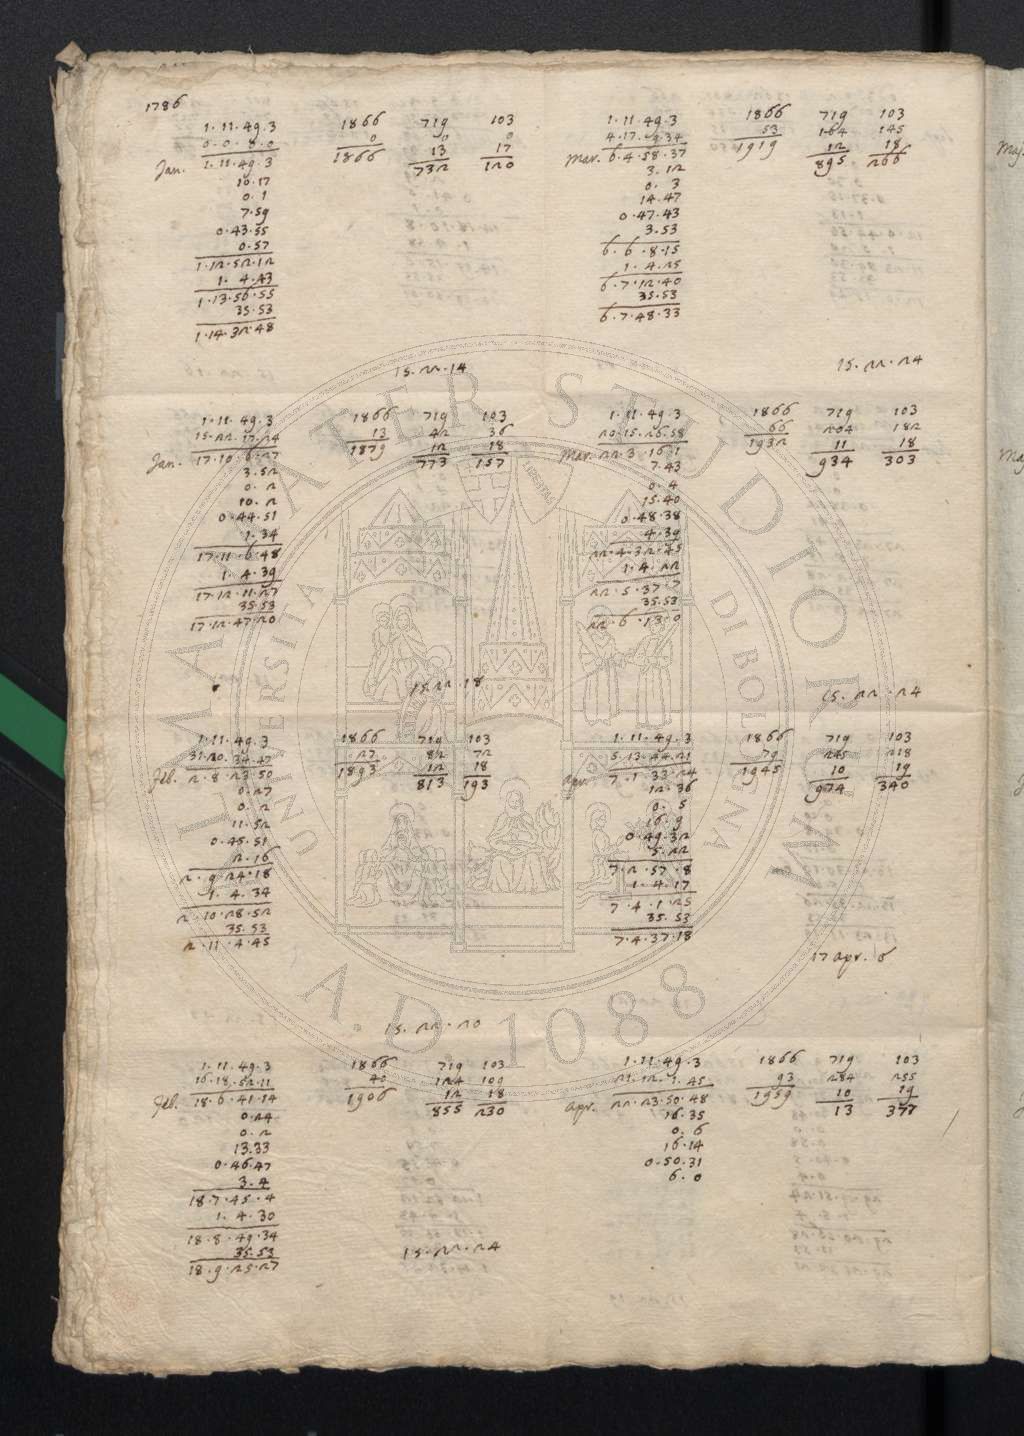 1786
1.11.49.3 1866 719 103
0.0.8.0 0 0 0
Jan. 1.11.49.3 1866 13 17
732 120
10.17
0.1
7.59
0.43.55
0.57
1.12.52.12
1.4.43
1.13.56.55
35.53
1.14.32.48
15.22.14
1.11.49.3 1866 719 103
15.22.17.24 13 42 36
Jan. 17.10.6.27 1879 12 18
773 157
3.52
0.2
10.2
0.44.51
1.34
17.11.6.48
1.4.39
17.12.11.27
35.53
17.12.47.20
15.22.18
1.11.49.3 1866 719 103
31.20.34.47 27 82 72
Feb. 2.8.23.50 1893 12 18
813 193
0.27
0.2
11.52
0.45.51
2.16
2.9.24.18
1.4.34
2.10.28.52
35.53
2.11.4.45
15.22.20
1.11.49.3 1866 719 103
16.18.52.11 40 124 109
Feb. 18.6.41.14 1906 12 18
855 230
0.24
0.2
13.33
0.46.47
3.4
18.7.45.4
1.4.30
18.8.49.34
35.53
18.9.25.27
15.22.24
1.11.49.3 1866 719 103
4.17.9.34 53 164 145
Mar. 6.4.58.37 1919 12 18
895 266
3.12
0.3
14.47
0.47.43
3.53
6.6.8.15
1.4.25
6.7.12.40
35.53
6.7.48.33
15.22.24
1.11.49.3 1866 719 103
20.15.26.58 66 204 182
Mar. 22.3.16.1 1932 11 18
934 303
7.43
0.4
15.40
0.48.38
4.39
22.4.32.45
1.4.22
22.5.37.7
35.53
22.6.13.0
15.22.24
1.11.49.3 1866 719 103
5.13.44.21 79 245 218
apr. 7.1.33.24 1945 10 19
974 340
12.36
0.5
16.9
0.49.32
5.22
7.2.57.8
1.4.17
7.4.1.25
35.53
7.4.37.18
17 apr. 6
1.11.49.3 1866 719 103
21.12.1.45 93 284 255
apr. 22.23.50.48 1959 10 19
13 377
16.35
0.6
16.14
0.50.31
6.0
Maj.
Maj
ALMA MATER STUDIORUM
UNIVERSITÀ DI BOLOGNA
LIBERTAS
A.D. 1088